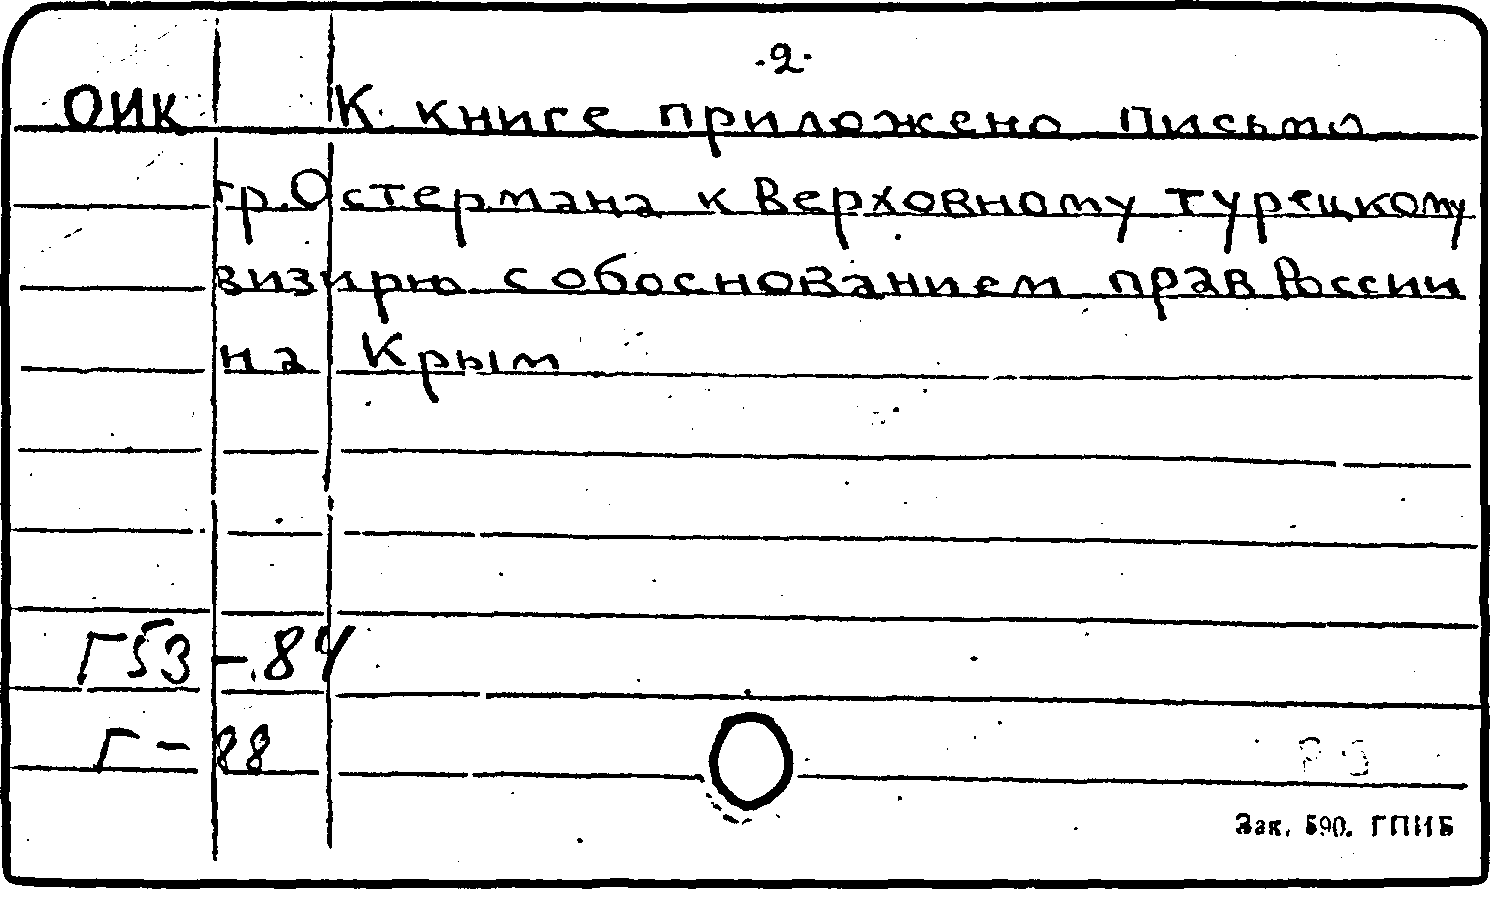 ·2·
ОИК К книге приложено письмо
гр. Остермана к Верховному турецкому
визирю с обоснованием прав России
на Крым
Г53-84
Г-88
Зак. 590. ГПИБ